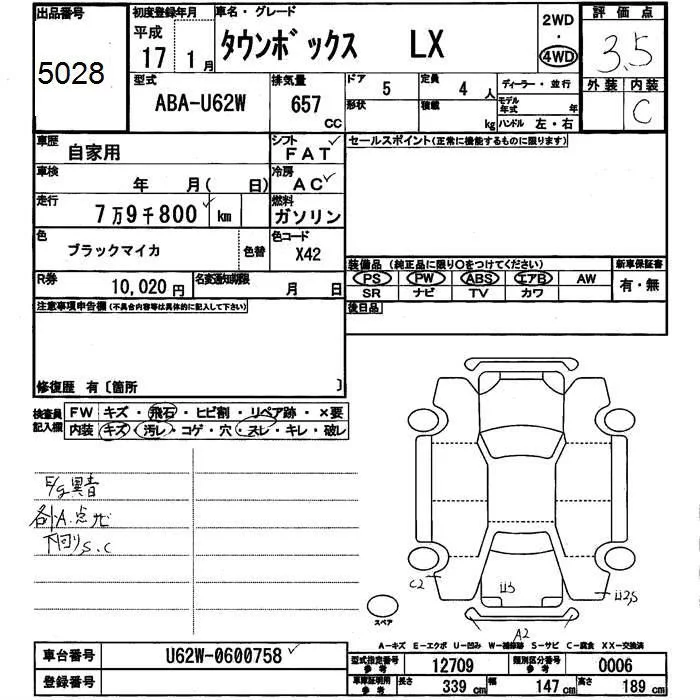 出品番号
5028
初度登録年月
平成
17 1月
車名・グレード
タウンボックス LX
2WD
・
4WD
評価点
3.5
外装 内装
C
型式
ABA-U62W
排気量
657
CC
ドア 5
定員 4 人
ディーラー・並行
形状
積載 kg
モデル年式 年
ハンドル 左・右
車歴
自家用
シフト
FAT
セールスポイント(正常に機能するものに限ります)
車検
年 月( 日)
冷房
AC
走行
7万9千800 km
燃料
ガソリン
色
ブラックマイカ
色替
色コード
X42
R券
10,020円
名変通知期限
月 日
装備品 (純正品に限り○をつけてください)
新車保証書
PS PW ABS エアB AW
有・無
SR ナビ TV カワ
後日品
注意事項申告欄(不具合内容等は具体的に記入して下さい)
修復歴 有〔箇所 〕
検査員記入欄
FW キズ・飛石・ヒビ割・リペア跡・×要
内装 キズ・汚レ・コゲ・穴・スレ・キレ・破レ
E/g異音
各外A.点サビ
下回りS.C
C2
U3
U2,S
A2
スペア
A-キズ E-エクボ U-凹み W-補修跡 S-サビ C-腐食 XX-交換済
車台番号
U62W-0600758
型式指定番号参考
12709
類別区分番号参考
0006
登録番号
車庫証明用参考
長さ 339 cm
幅 147 cm
高さ 189 cm